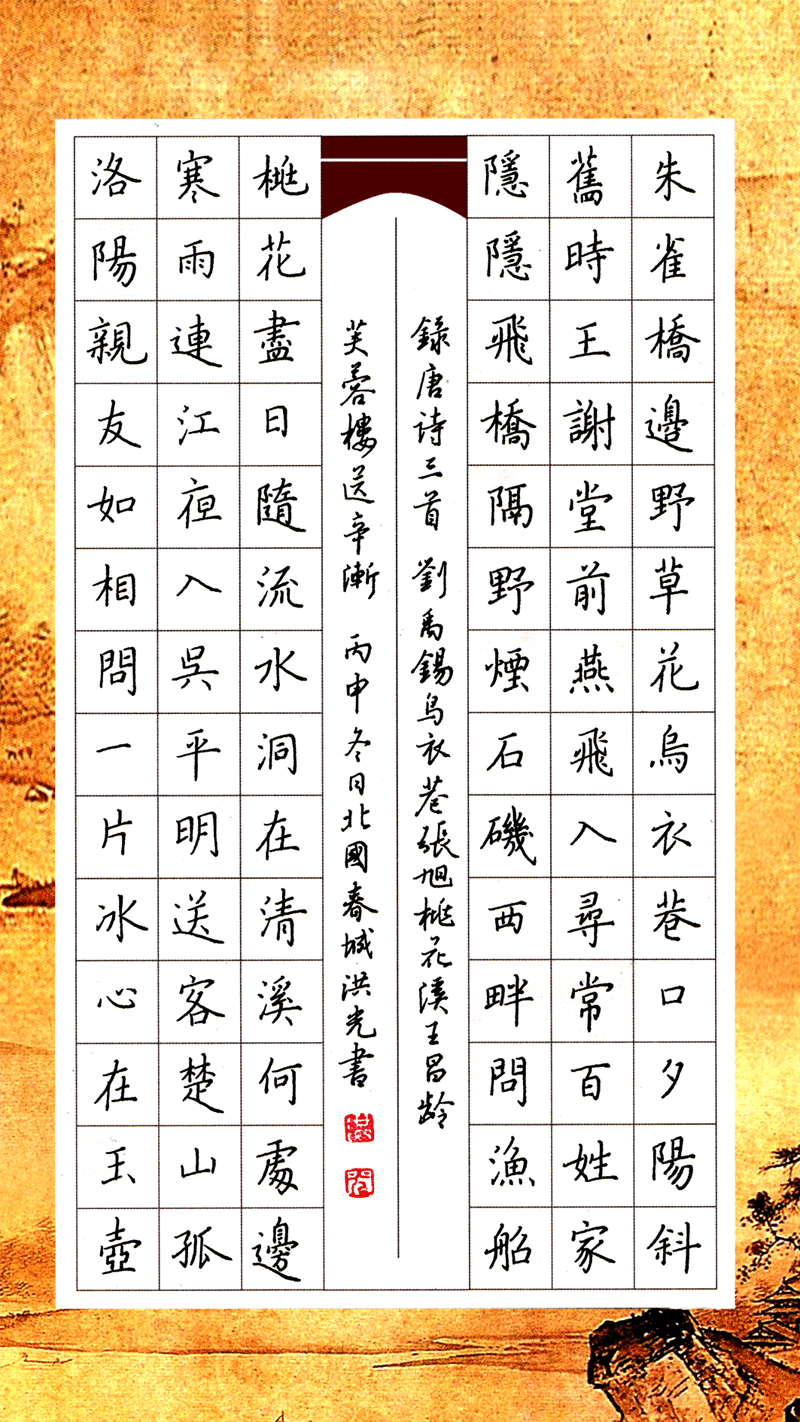 朱雀橋邊野草花烏衣巷口夕陽斜
舊時王謝堂前燕飛入尋常百姓家
隱隱飛橋隔野煙石磯西畔問漁船
錄唐诗三首 劉禹錫烏衣巷張旭桃花溪王昌龄
芙蓉樓送辛漸 丙申冬日北國春城洪光書
桃花盡日隨流水洞在清溪何處邊
寒雨連江夜入吳平明送客楚山孤
洛陽親友如相問一片冰心在玉壺